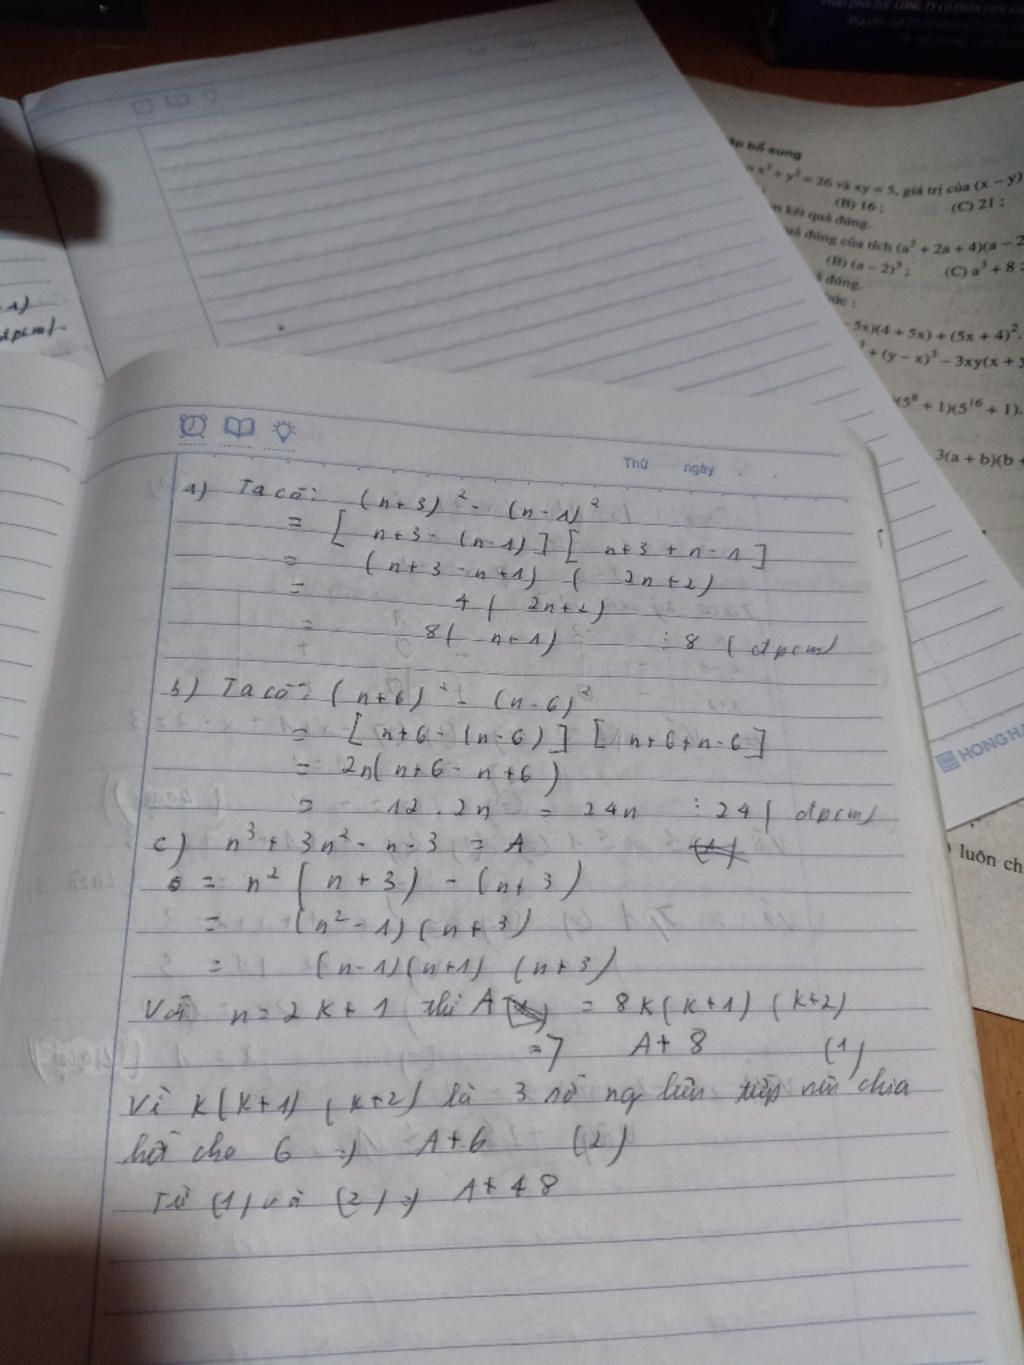 Phân phối bởi: CÔNG TY CỔ PHẦN
Địa chỉ:
bổ sung
x² + y² = 26 và xy = 5, giá trị của (x − y)
(B) 16 ; (C) 21 ;
kết quả đúng.
đúng của tích (a² + 2a + 4)(a − 2
(B) (a − 2)³ ; (C) a³ + 8 ;
đúng.
5x)(4 + 5x) + (5x + 4)².
+ (y − x)³ − 3xy(x +
(5⁸ + 1)(5¹⁶ + 1).
3(a + b)(b +
1)
đpcm).
Thứ ngày
a) Ta có: (n+3)² - (n-1)²
= [ n+3 - (n-1) ] [ n+3 + n-1 ]
= (n+3 - n+1) ( 2n+2)
= 4 ( 2n+2)
= 8( n+1) ⋮ 8 ( đpcm)
b) Ta có: (n+6)² - (n-6)²
= [ n+6 - (n-6) ] [ n+6+n-6 ]
= 2n( n+6 - n+6 )
= 12 . 2n = 24n ⋮ 24 ( đpcm)
c) n³ + 3n² - n - 3 = A
= n² ( n+3 ) - (n+3 )
= (n² - 1) (n+3)
= (n-1)(n+1) (n+3)
Với n = 2k + 1 thì A = 8k(k+1) (k+2)
=> A ⋮ 8 (1)
Vì k(k+1) (k+2) là 3 số ng liên tiếp nên chia
hết cho 6 => A ⋮ 6 (2)
Từ (1) và (2) => A ⋮ 48
HONG HA
luôn ch